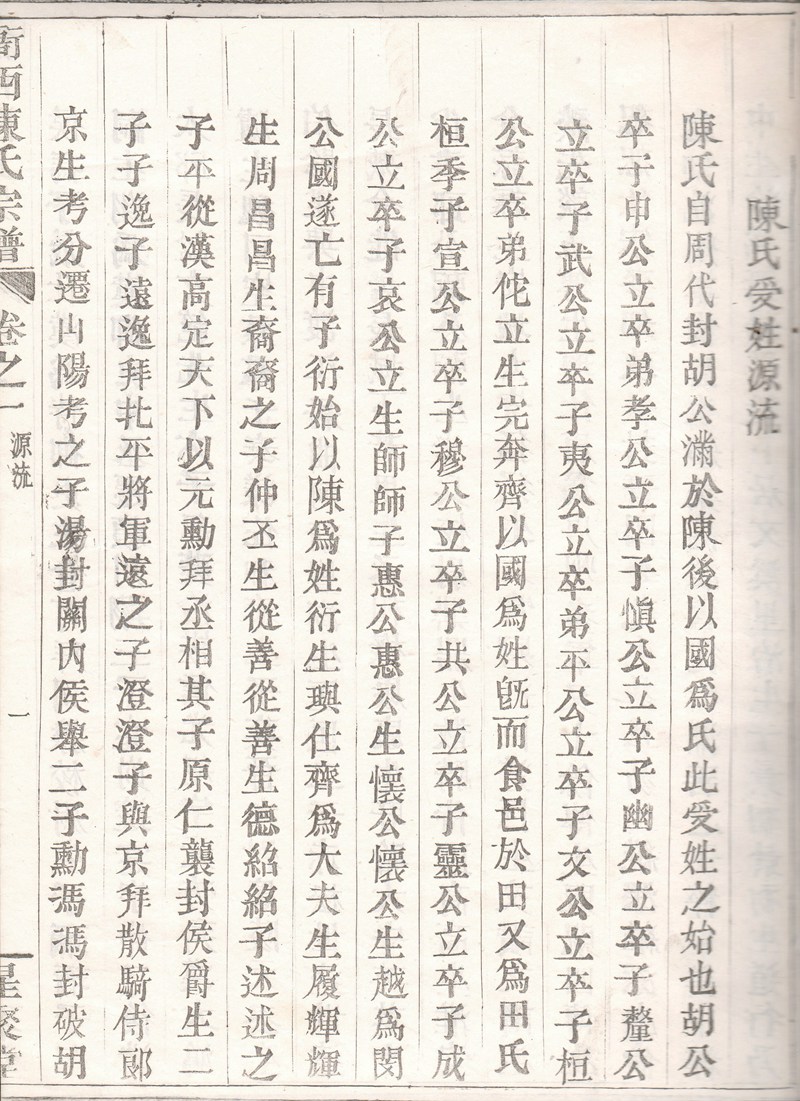 陳氏受姓源流
陳氏自周代封胡公滿於陳後以國爲氏此受姓之始也胡公
卒子申公立卒弟孝公立卒子愼公立卒子幽公立卒子釐公
立卒子武公立卒子夷公立卒弟平公立卒子文公立卒子桓
公立卒弟佗立生完奔齊以國爲姓旣而食邑於田又爲田氏
桓季子宣公立卒子穆公立卒子共公立卒子靈公立卒子成
公立卒子哀公立生師師子惠公惠公生懷公懷公生越爲閔
公國遂亡有子衍始以陳爲姓衍生琠仕齊爲大夫生履輝輝
生周昌昌生裔裔之子仲丕生從善從善生德紹紹子述述之
子平從漢高定天下以元勳拜丞相其子原仁襲封侯爵生二
子子逸子遠逸拜北平將軍遠之子澄澄子與京拜散騎侍郞
京生考分遷山陽考之子湯封關內侯舉二子勳馮馮封破胡
西陳氏宗譜 卷之一 源流 一 星聚堂